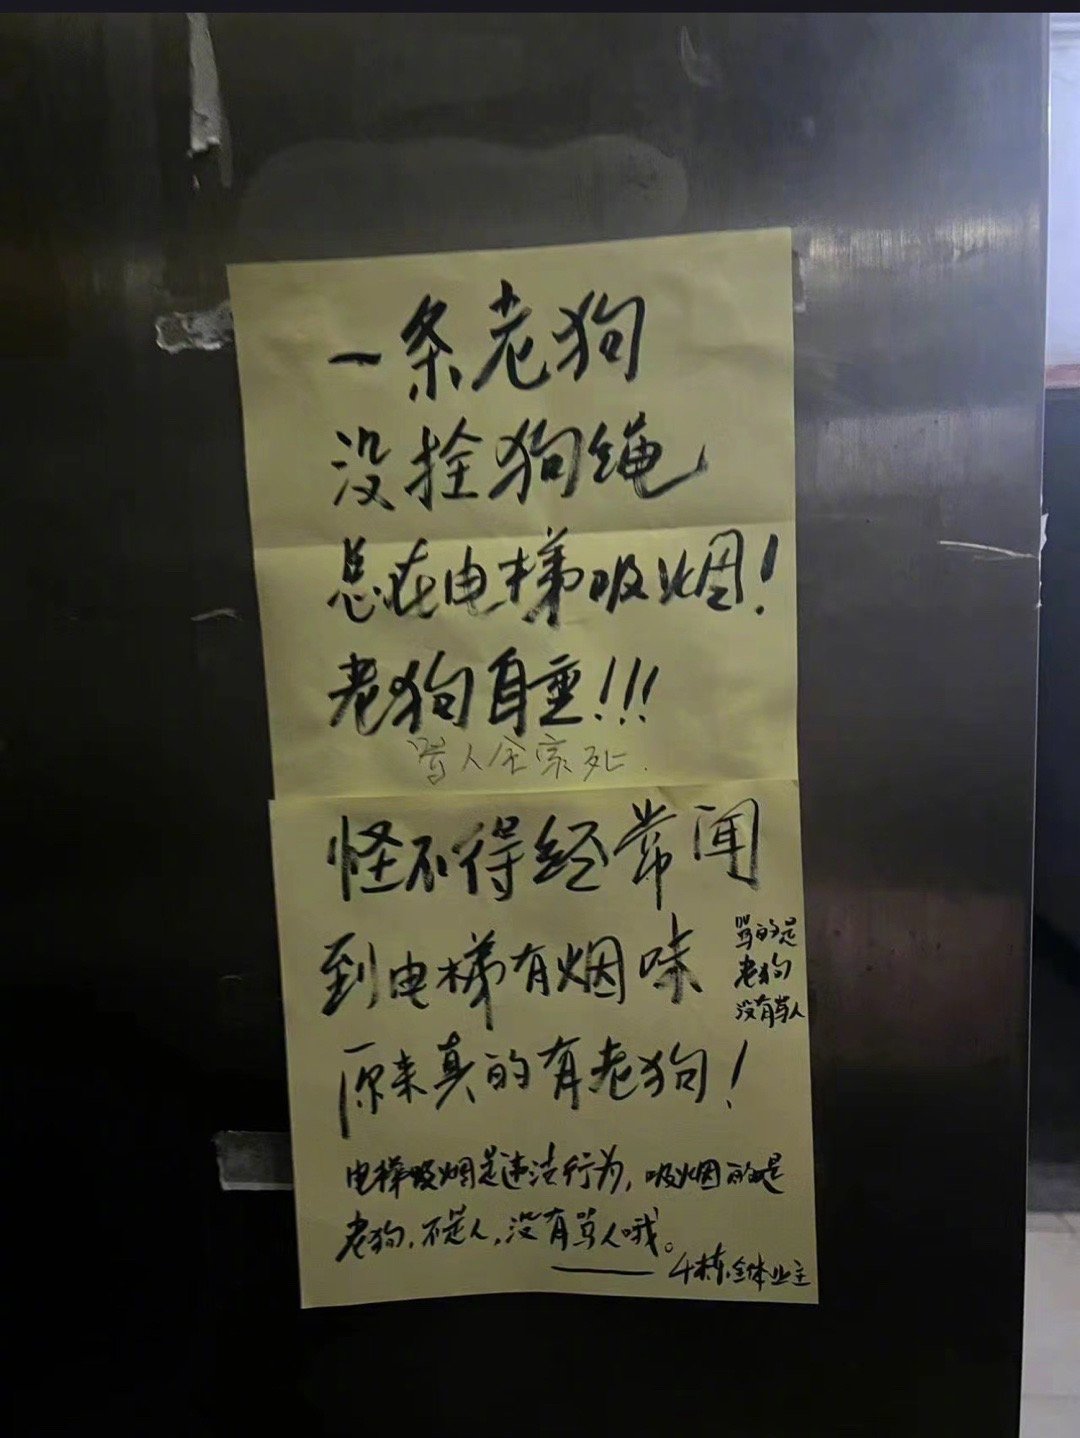 一条老狗
没拴狗绳
总在电梯吸烟！
老狗自重！！！
骂人全家死.
怪不得经常闻
到电梯有烟味
骂的是
老狗
没有骂人
原来真的有老狗！
电梯吸烟是违法行为，吸烟的是
老狗，不是人，没有骂人哦。
——4栋全体业主